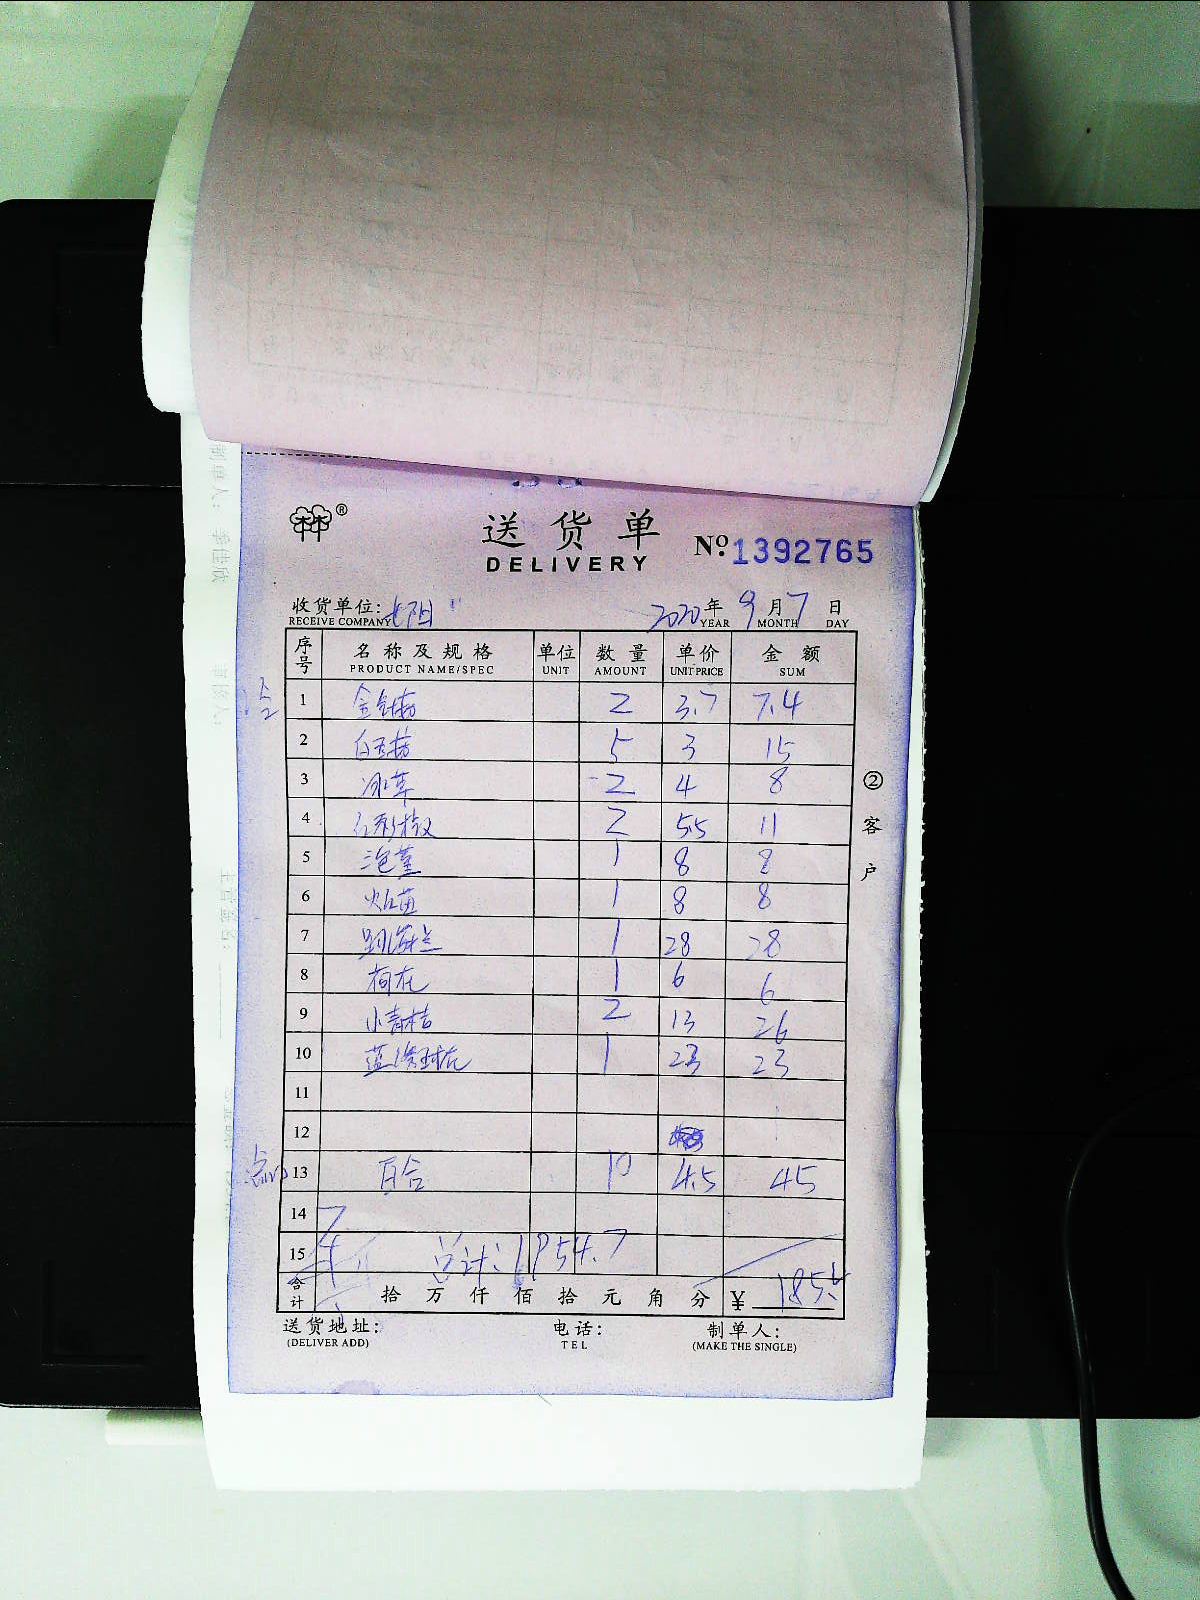 林 ®
送货单 No. 1392765
DELIVERY
收货单位: 2020年 9月 7日
RECEIVE COMPANY YEAR MONTH DAY
序号 名称及规格 单位 数量 单价 金额
PRODUCT NAME/SPEC UNIT AMOUNT UNIT PRICE SUM
1 金针菇 2 3.7 7.4
2 白玉菇 5 3 15
3 冰草 2 4 8
4 2 5.5 11
5 1 8 8
6 1 8 8
7 1 28 28
8 1 6 6
9 小青桔 2 13 26
10 1 23 23
11
12
13 百合 10 4.5 45
14
15 总计:1954.7
合计 拾 万 仟 佰 拾 元 角 分 ¥ 185.4
送货地址: 电话: 制单人:
(DELIVER ADD) TEL (MAKE THE SINGLE)
② 客户